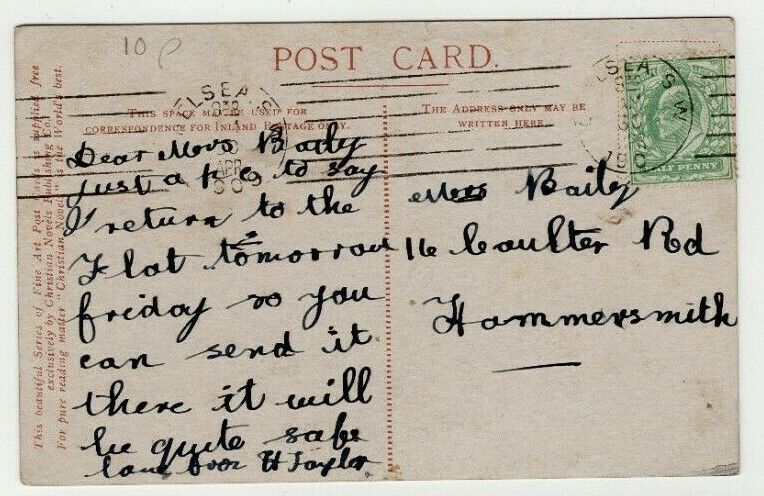 10
POST CARD.
THIS SPACE MAY BE USED FOR
CORRESPONDENCE FOR INLAND POSTAGE ONLY.
THE ADDRESS ONLY MAY BE
WRITTEN HERE.
This beautiful Series of Fine Art Post Cards is supplied free
exclusively by Christian Novels Publishing Co.
For pure reading matter "Christian Novels" is the World's best.
ELSEA S
APR
09
ELSEA. S.W.
HALF PENNY
Dear Mrs Baily
just a p c to say
I return to the
Flat tomorrow
friday so you
can send it
there it will
be quite safe
H Taylor
Mrs Baily
16 Coulter Rd
Hammersmith